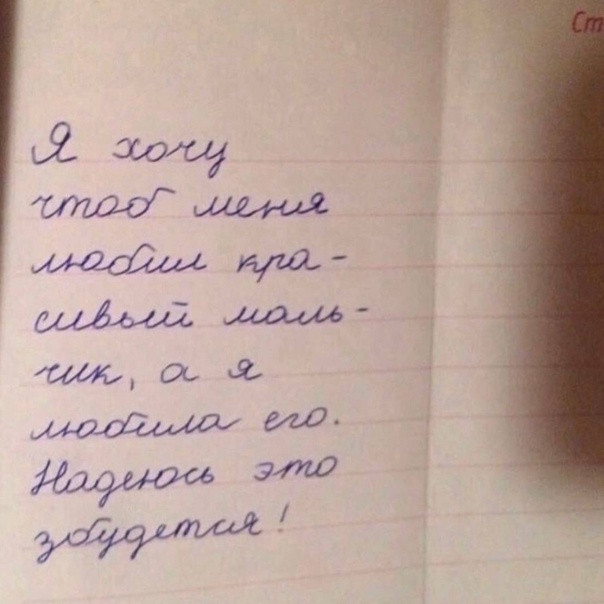 Ст
Я хочу
чтоб меня
любил кра-
сивый маль-
чик, а я
любила его.
Надеюсь это
збудется!